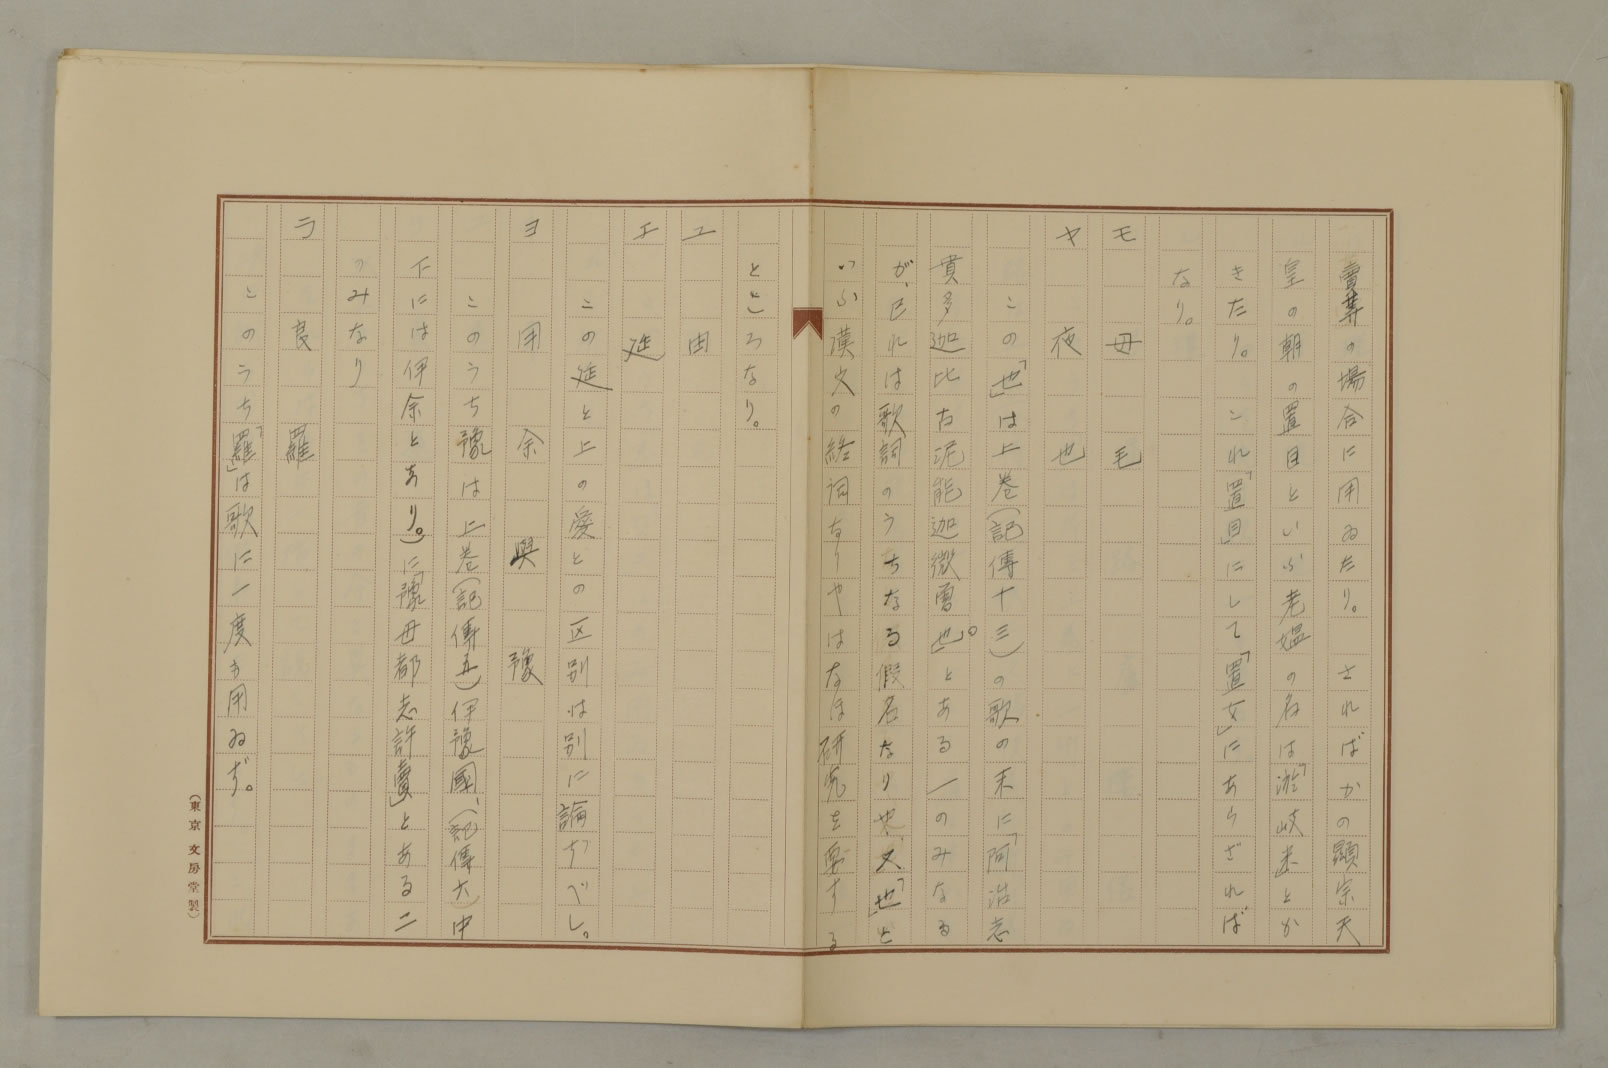 賣等の場合に用ゐたり。さればかの顯宗天
皇の朝の置目といふ老媼の名は淤岐米とか
きたり。これ「置目」にして「置女」にあらざれば
なり。
モ 母 毛
ヤ 夜 也
この「也」は上巻(記傳十三)の歌の末に「阿治志
貴多迦比古泥能迦微曾也」。とある一のみなる
が、これは歌詞のうちなる假名なりや、又「也」と
いふ漢文の結詞なりやはなほ研究を要する
ところなり。
ユ 由
エ 延
この延と上の愛との区別は別に論ずべし。
ヨ 用 余 與 豫
このうち豫は上巻(記傳五)伊豫國、(記傳六)中
下には伊余とあり。)に「豫母都志許賣」とある二
のみなり
ラ 良 羅
このうち「羅」は歌に一度も用ゐず。
(東京文房堂製)